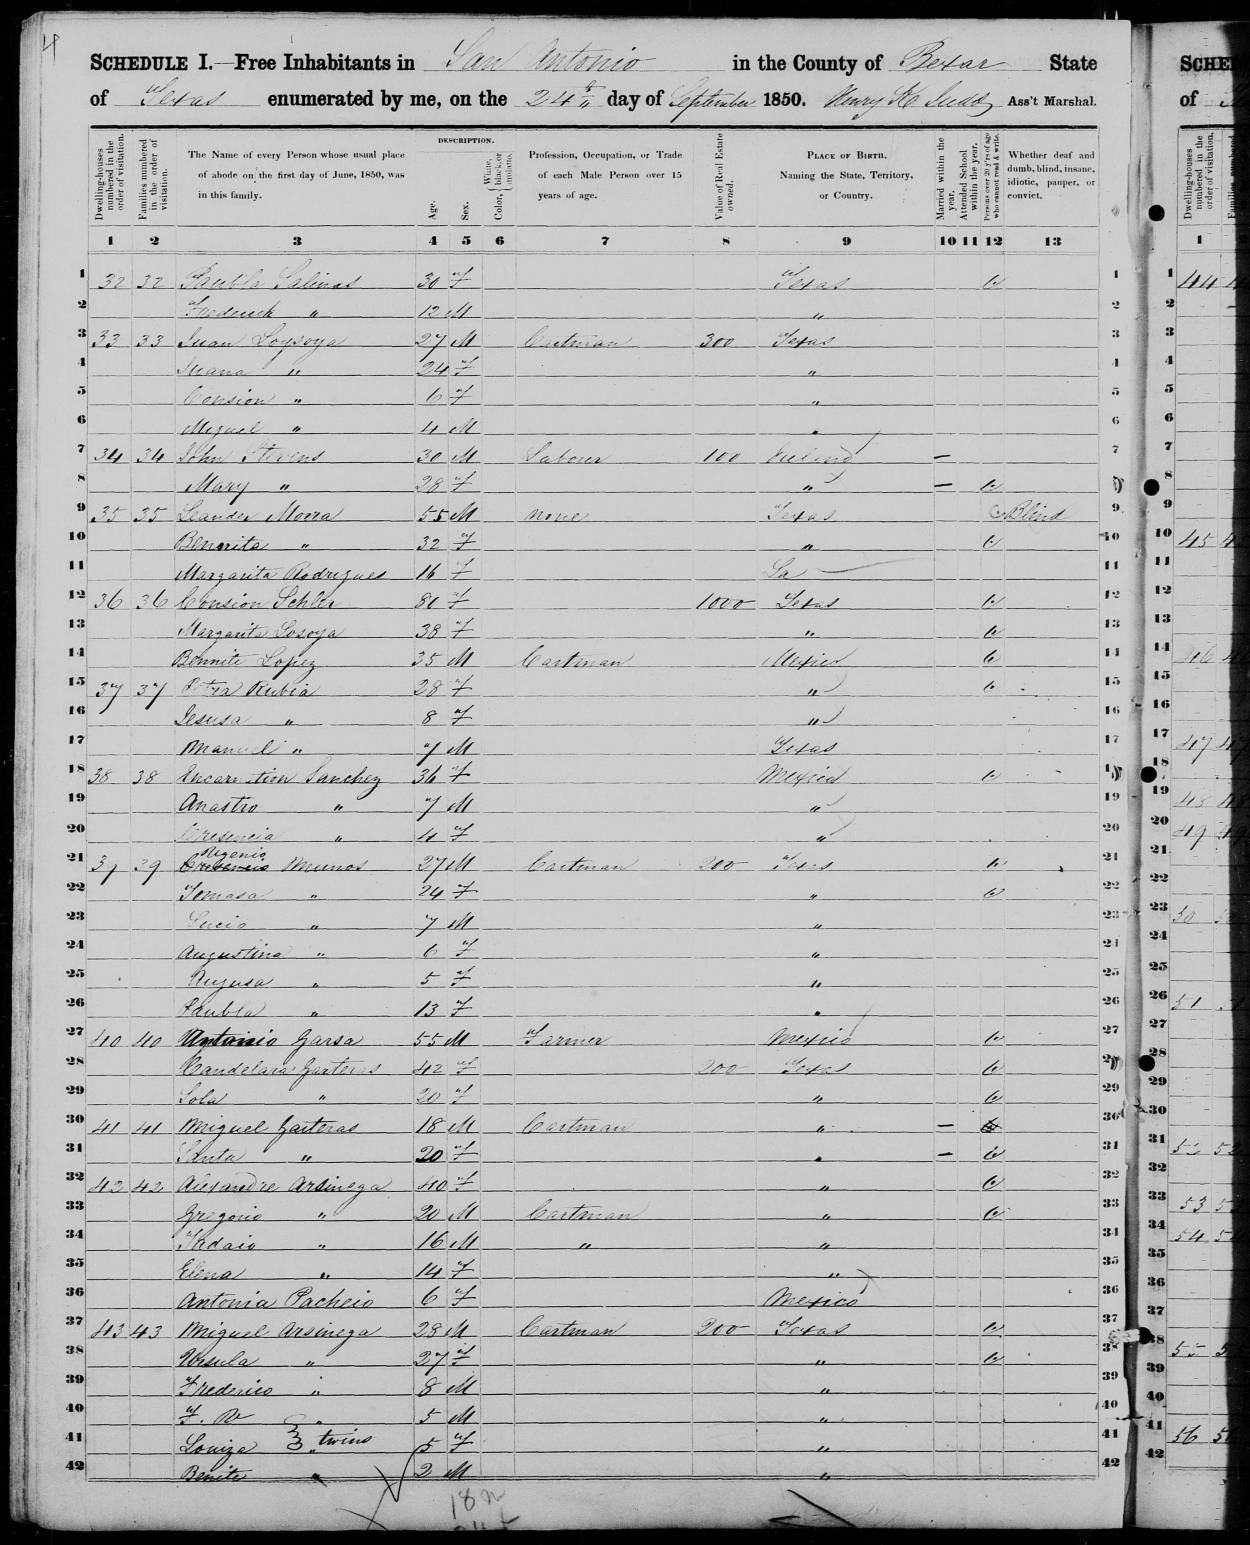 4
SCHEDULE I.—Free Inhabitants in San Antonio in the County of Bexar State
of Texas enumerated by me, on the 24th day of September 1850. Henry K. Judd Ass't Marshal.
Dwelling-houses numbered in the order of visitation.
Families numbered in the order of visitation.
The Name of every Person whose usual place of abode on the first day of June, 1850, was in this family.
DESCRIPTION.
Age.
Sex.
Color, White, black, or mulatto.
Profession, Occupation, or Trade of each Male Person over 15 years of age.
Value of Real Estate owned.
PLACE OF BIRTH. Naming the State, Territory, or Country.
Married within the year.
Attended School within the year.
Persons over 20 y'rs of age who cannot read & write.
Whether deaf and dumb, blind, insane, idiotic, pauper, or convict.
1 2 3 4 5 6 7 8 9 10 11 12 13
1 32 32 Paubla Salinas 30 F Texas 1
2 Frederick " 12 M " 2
3 33 33 Juan Loysoya 27 M Cartman 300 Texas 3
4 Juana " 24 F " 4
5 Consion " 6 F " 5
6 Miguel " 4 M " 6
7 34 34 John Stevens 30 M Laborer 100 Ireland — 7
8 Mary " 28 F " — 8
9 35 35 Leander Morra 55 M None Texas Blind 9
10 Bennita " 32 F " 10
11 Margarita Rodrigues 16 F La 11
12 36 36 Consion 80 F 1000 Texas 12
13 Margarita Losoya 38 F " 13
14 Bennite Lopez 35 M Cartman Mexico 14
15 37 37 Petra Rubia 28 F " 15
16 Jesusa " 8 F " 16
17 Manuel " 7 M Texas 17
18 38 38 Incarnation Sanchez 36 F Mexico 18
19 Anastro " 7 M " 19
20 Cresencia " 4 F " 20
21 39 39 Rigenio Munos 27 M Cartman 200 Texas 21
22 Tomasa " 24 F " 22
23 Lucio " 7 M " 23
24 Augustina " 6 F " 24
25 " 5 F " 25
26 Paubla " 13 F " 26
27 40 40 Antonio Garsa 55 M Farmer Mexico 27
28 Candelara Garteras 42 F 200 Texas 28
29 Sola " 20 F " 29
30 41 41 Miguel Garteras 18 M Cartman " — 30
31 Santa " 20 F " — 31
32 42 42 Alexandre Arsinega 40 F " 32
33 Gregorio " 20 M Cartman " 33
34 " 16 M " " 34
35 Elena " 14 F " 35
36 Antonia Pacheio 6 F Mexico 36
37 43 43 Miguel Arsinega 28 M Cartman 200 Texas 37
38 Ursula " 27 F " 38
39 Frederico " 8 M " 39
40 " 5 M " 40
41 Louiza " twins 5 F " 41
42 Benite " 2 M " 42
18 m
SCHED
of
1
44
45
46
47
48
49
50
51
52
53
54
55
56